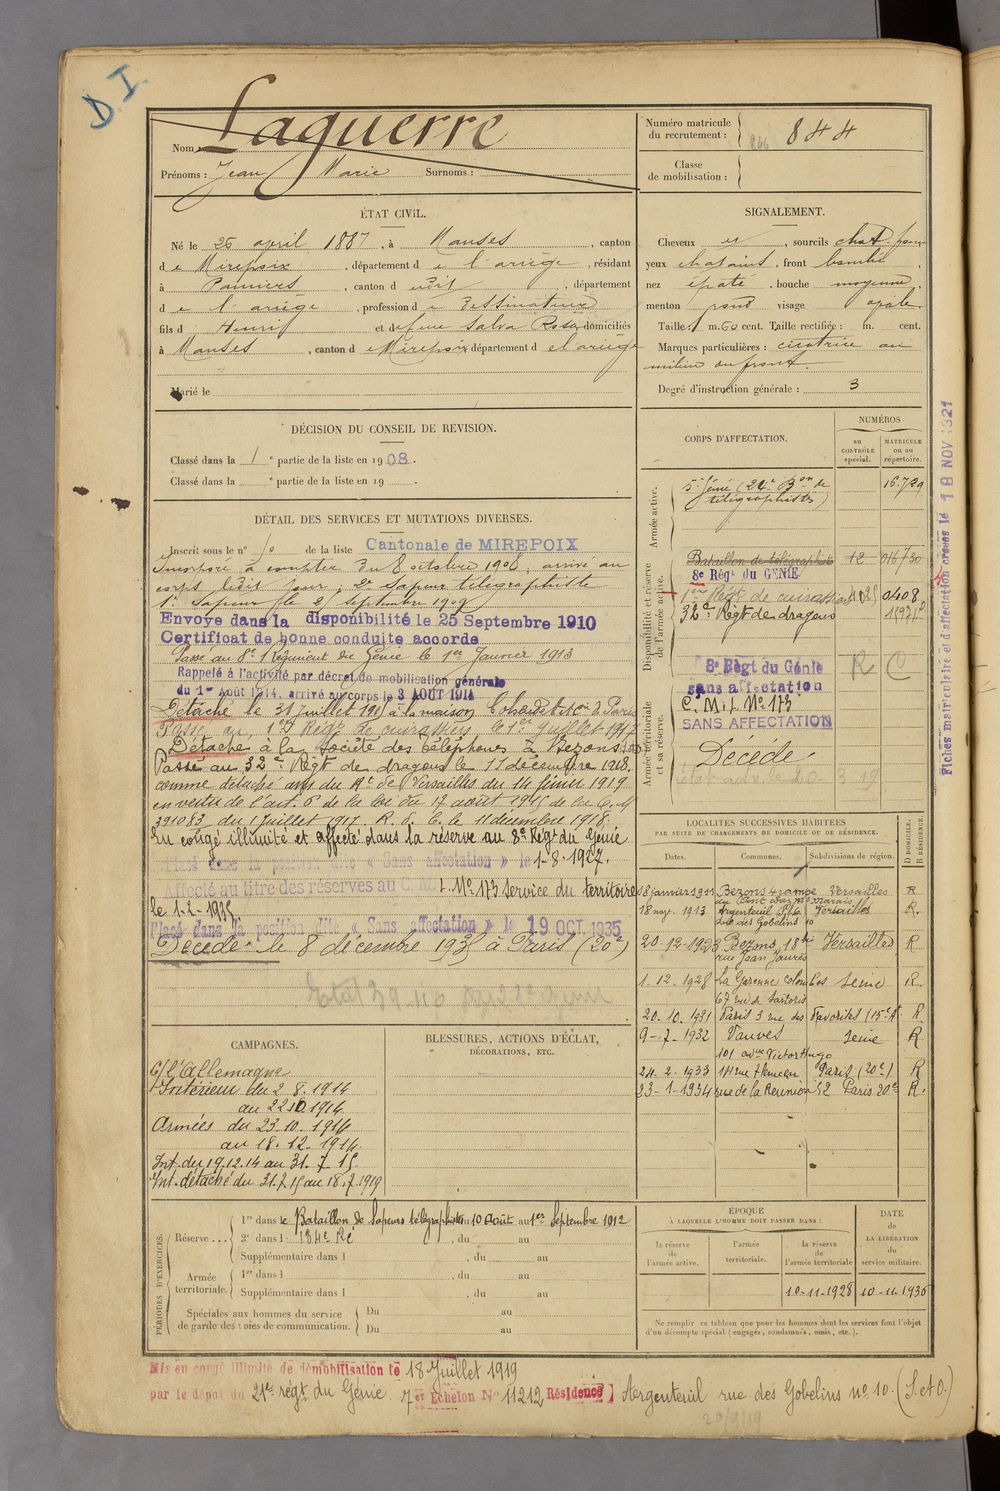 D.I.
Nom : Laguerre
Prénoms : Jean Marie Surnoms :
Numéro matricule
du recrutement : 844
Classe
de mobilisation :
ÉTAT CIVIL.
Né le 26 april 1887, à Manses, canton
de Mirepoix, département de l'ariège, résidant
à Pamiers, canton dudit, département
de l'ariège, profession de Dessinateur
fils d Henri et de feue Salva Rosa, domiciliés
à Manses, canton de Mirepoix, département de l'ariège
Marié le
SIGNALEMENT.
Cheveux et, sourcils chat.
yeux chatains, front bombé,
nez épaté, bouche moyenne,
menton rond visage ovale.
Taille : 1 m. 60 cent. Taille rectifiée : m. cent.
Marques particulières : cicatrice au
milieu du front.
Degré d'instruction générale : 3
DÉCISION DU CONSEIL DE REVISION.
Classé dans la 1e partie de la liste en 1908.
Classé dans la e partie de la liste en 19 .
DÉTAIL DES SERVICES ET MUTATIONS DIVERSES.
Inscrit sous le n° de la liste Cantonale de MIREPOIX
Incorporé à compter du 8 octobre 1908, arrivé au
corps ledit jour, 2e Sapeur télégraphiste
1er Sapeur le 21 septembre 1909
Envoyé dans la disponibilité le 25 Septembre 1910
Certificat de bonne conduite accordé
Passé au 8e Régiment du Génie le 1er Janvier 1913
Rappelé à l'activité par décret de mobilisation générale
du 1er Août 1914, arrivé au corps le 3 AOUT 1914
Détaché le 31 juillet 1915 à la maison
Passé au 1er Régt de cuirassiers le 1er juillet 1917
Détaché à la Société des téléphones à Bezons
Passé au 32e Régt de dragons le 11 décembre 1918.
comme détaché de Versailles du 14 février 1919
en vertu de l'art. 6 de la loi du 17 août 1915 de la C. M
391083 du 1 juillet 1917. R. d. C. le 11 décembre 1918.
En congé illimité et affecté dans la réserve au 8e Régt du Génie
Placé dans la position dite « Sans affectation » le 1-8-1927.
Affecté au titre des réserves au C. M. I. No 173 Service du territoire
le 1-2-1935
Placé dans la position dite « Sans affectation » le 19 OCT. 1935
Décédé le 8 décembre à Paris (20e)
CORPS D'AFFECTATION.
NUMÉROS
au
CONTRÔLE
spécial.
MATRICULE
ou au
répertoire.
Armée active.
5e Génie (24e Bon de
télégraphistes) 16.729
Disponibilité et réserve
de l'armée active.
Bataillon de télégraphistes 12 016730
8e Régt du GENIE
1er Régt de cuirassiers
32e Régt de dragons
Armée territoriale
et sa réserve.
8e Règt du Génie R C
sans affectation
C. M. I. No 173
SANS AFFECTATION
Décédé
Fiches matriculaire et d'affectation créées le 18 NOV 1921
LOCALITÉS SUCCESSIVES HABITÉES
PAR SUITE DE CHANGEMENTS DE DOMICILE OU DE RÉSIDENCE.
Dates. Communes. Subdivisions de région. D DOMICILE. R RÉSIDENCE.
8 janvier 1911 Bezons Versailles R
18 nov. 1913 Argenteuil Versailles R.
rue des Gobelins 10
20-12-1923 Bezons, 18bis Versailles R
rue Jean Jaurès
1.12.1928 La Garenne Colombes Seine R.
67 rue de Sartoris
20.10.1931 Paris 3 rue des Favorites (15e At R.
9-7-1932 Vanves Seine R
101 avue Victor Hugo
24-2-1933 Paris (20e) R
23-1-1934 rue de la Réunion 52 Paris 20e R.
CAMPAGNES.
C/ l'Allemagne
Intérieur du 2.8.1914
au 22.10.1914
Armées du 23.10.1914
au 18.12.1914
Int. du 19.12.14 au 31.7.15
Int. détaché du 31.7.15 au 18.7.1919
BLESSURES, ACTIONS D'ÉCLAT,
DÉCORATIONS, ETC.
PÉRIODES D'EXERCICES.
Réserve ... 1re dans le Bataillon de Sapeurs télégraphistes du 10 Août au 1er Septembre 1912
2e dans l , du au
Supplémentaire dans l , du au
Armée
territoriale. 1re dans l , du au
Supplémentaire dans l , du au
Spéciales aux hommes du service
de garde des voies de communication. Du au
Du au
ÉPOQUE
À LAQUELLE L'HOMME DOIT PASSER DANS :
la réserve
de
l'armée active.
l'armée
territoriale.
la réserve
de
l'armée territoriale
10-11-1928
DATE
de
LA LIBÉRATION
du
service militaire.
10-11-1936
Ne remplir ce tableau que pour les hommes dont les services font l'objet
d'un décompte spécial (engagés, condamnés, omis, etc.).
Mis en congé illimité de démobilisation le 18 Juillet 1919
par le dépôt du 21e régt du Génie 7er Echelon No 11212 Résidence } Argenteuil rue des Gobelins no 10. (S. et O.)